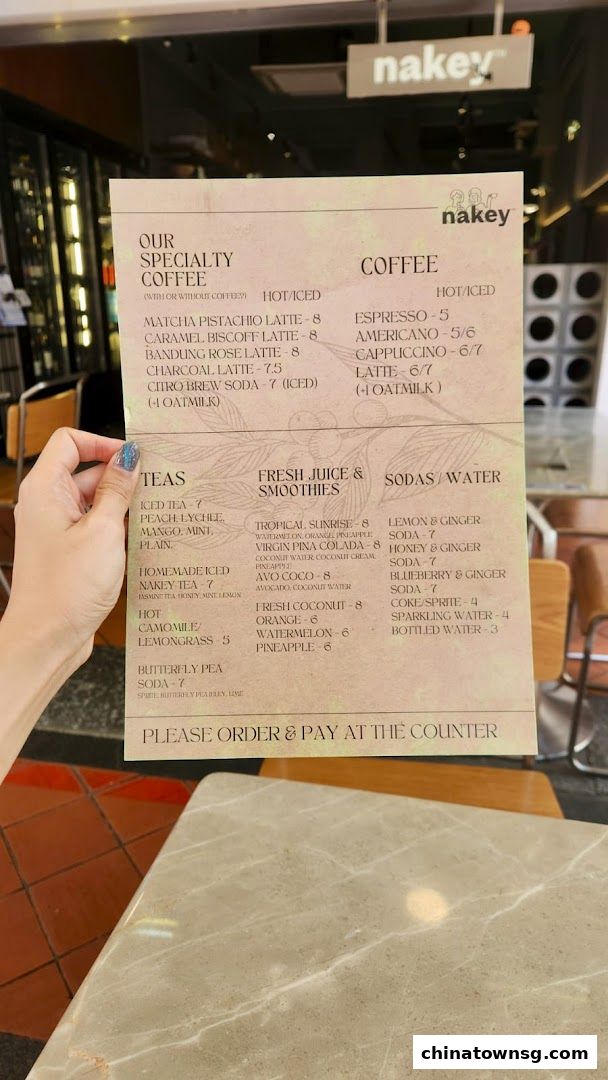 nakey
nakey
OUR
SPECIALTY
COFFEE
(WITH OR WITHOUT COFFEE?) HOT/ICED
MATCHA PISTACHIO LATTE - 8
CARAMEL BISCOFF LATTE - 8
BANDUNG ROSE LATTE - 8
CHARCOAL LATTE - 7.5
CITRO BREW SODA - 7 (ICED)
(+1 OATMILK)
COFFEE
HOT/ICED
ESPRESSO - 5
AMERICANO - 5/6
CAPPUCCINO - 6/7
LATTE - 6/7
(+1 OATMILK )
TEAS
ICED TEA - 7
PEACH, LYCHEE,
MANGO, MINT,
PLAIN.
HOMEMADE ICED
NAKEY TEA - 7
JASMINE TEA, HONEY, MINT, LEMON
HOT
CAMOMILE/
LEMONGRASS - 5
BUTTERFLY PEA
SODA - 7
SPRITE, BUTTERFLY PEA, LIME
FRESH JUICE &
SMOOTHIES
TROPICAL SUNRISE - 8
WATERMELON, ORANGE, PINEAPPLE
VIRGIN PINA COLADA - 8
COCONUT WATER, COCONUT CREAM,
PINEAPPLE
AVO COCO - 8
AVOCADO, COCONUT WATER
FRESH COCONUT - 8
ORANGE - 6
WATERMELON - 6
PINEAPPLE - 6
SODAS / WATER
LEMON & GINGER
SODA - 7
HONEY & GINGER
SODA - 7
BLUEBERRY & GINGER
SODA - 7
COKE/SPRITE - 4
SPARKLING WATER - 4
BOTTLED WATER - 3
PLEASE ORDER & PAY AT THE COUNTER
chinatownsg.com